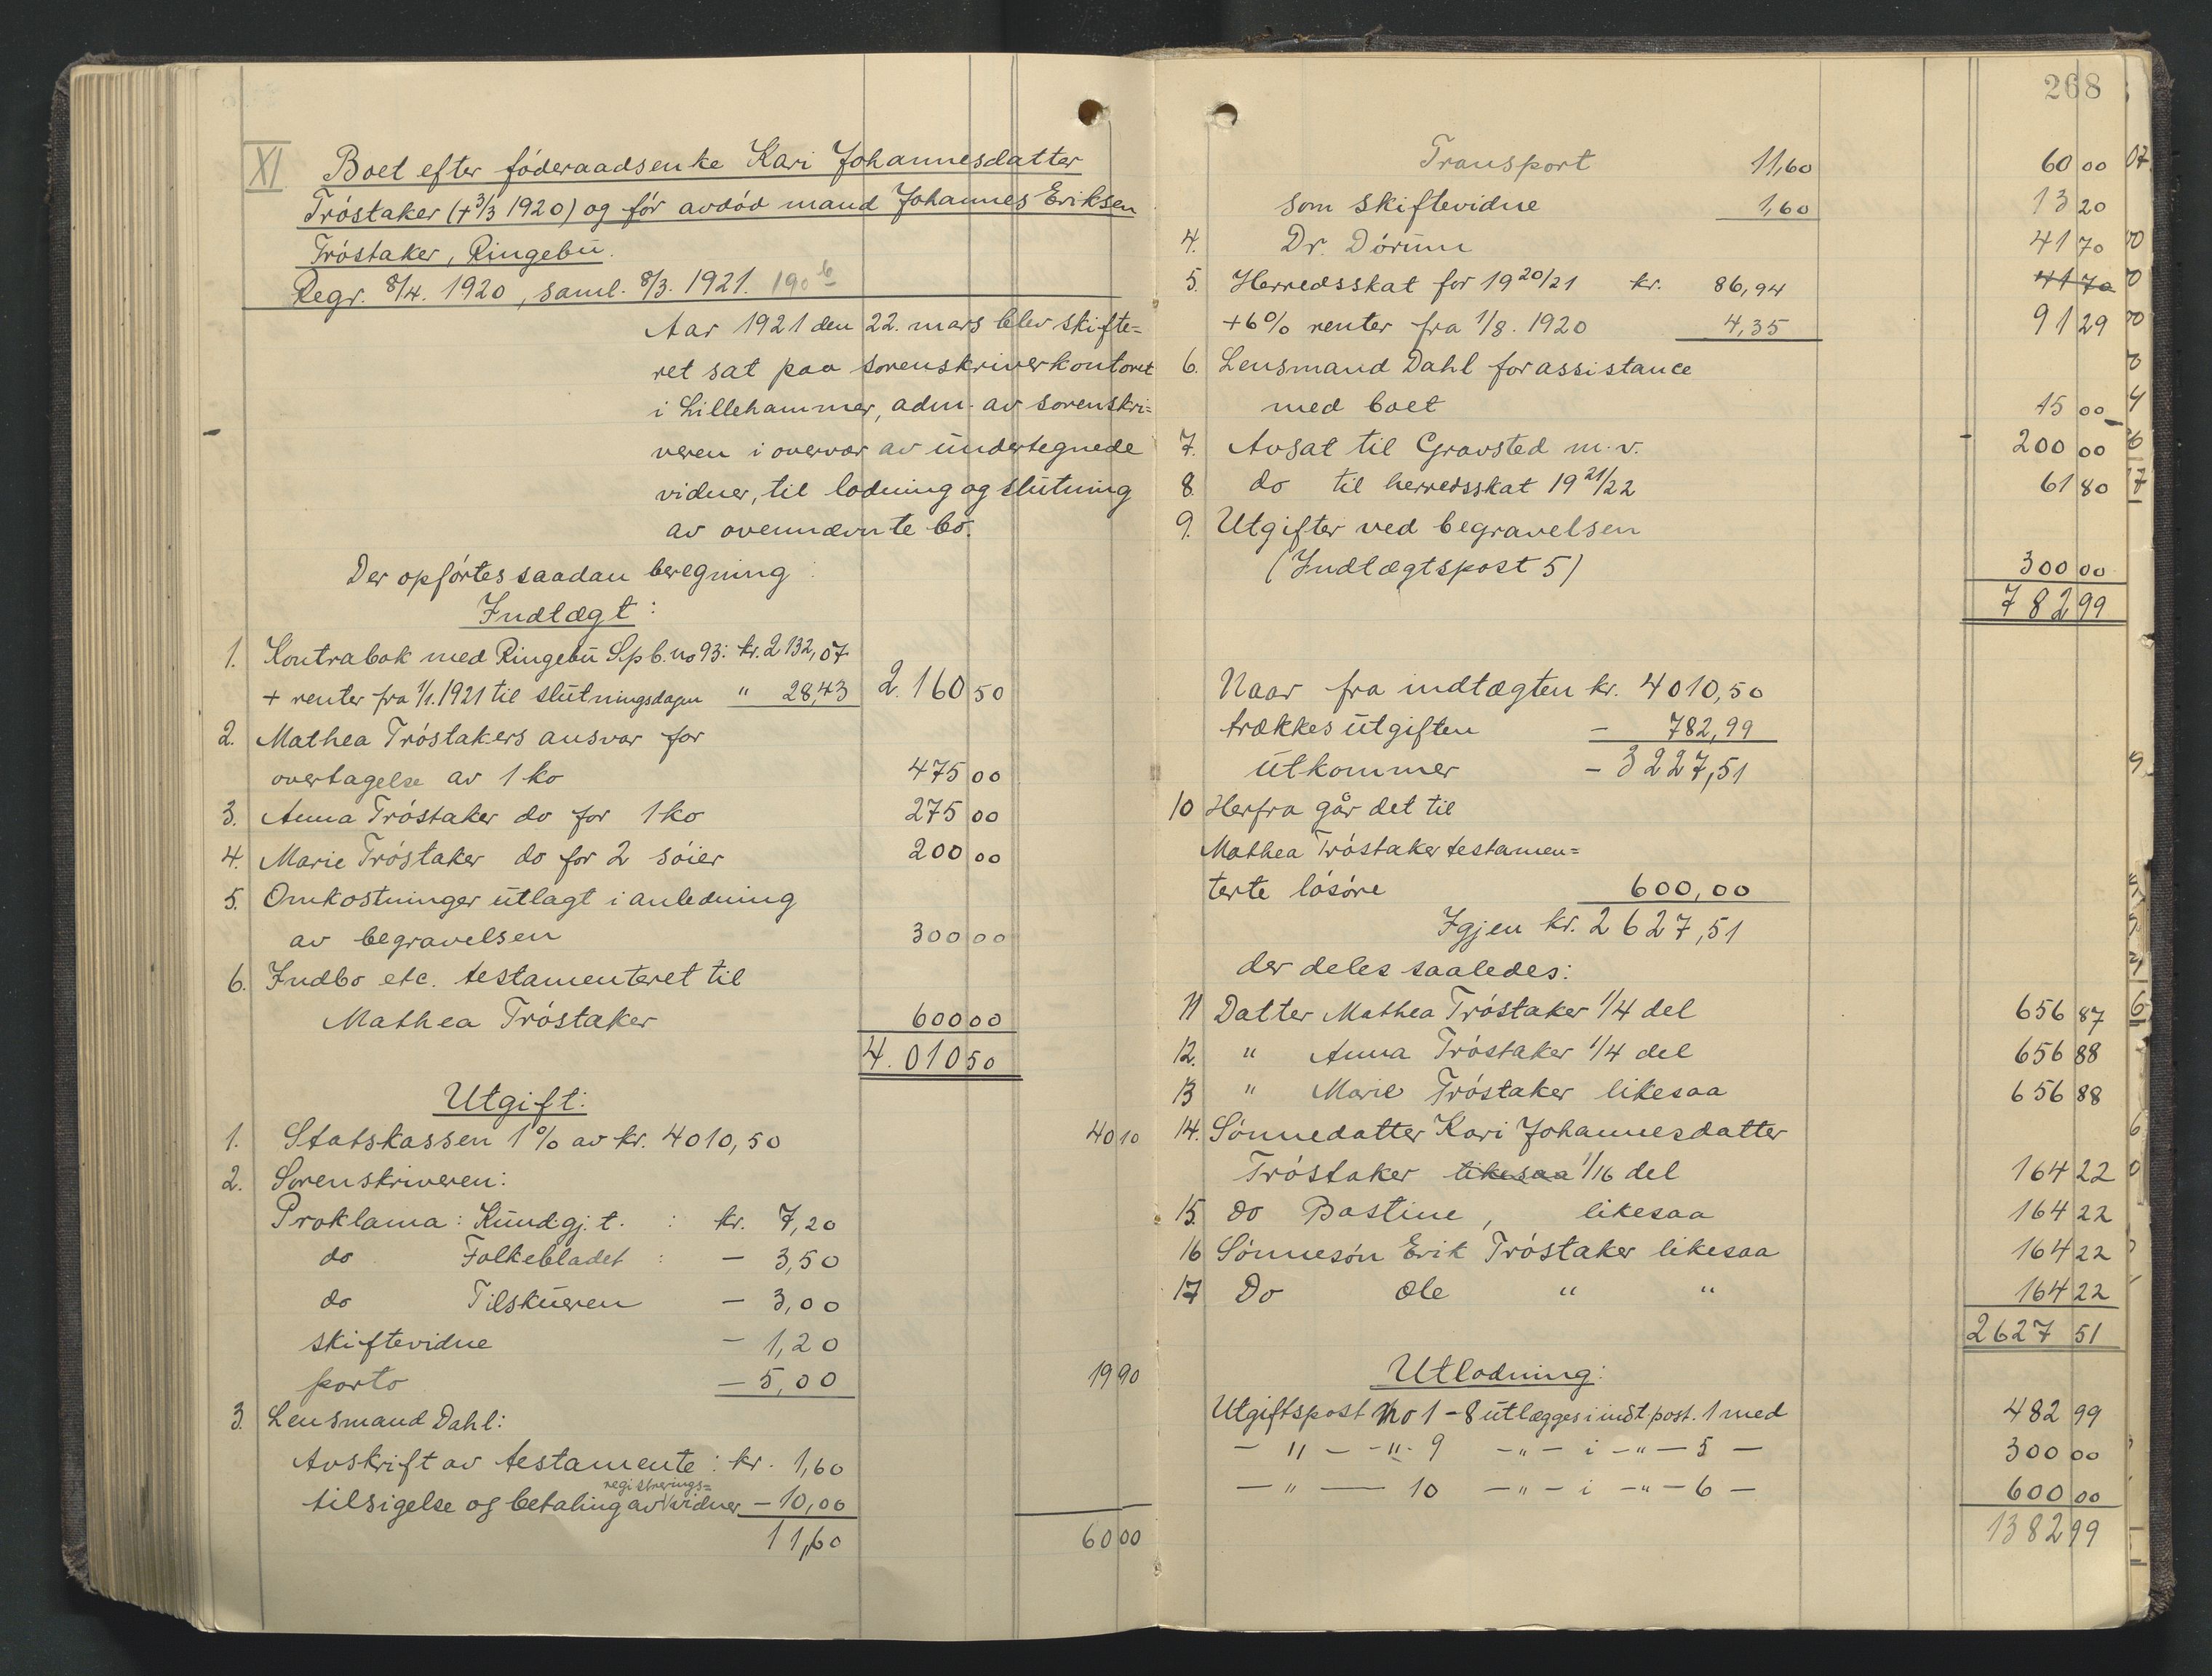 XI Boet efter föderaadsenke Kari Johannesdatter
Tröstaker (+ 3/3 1920) og för avdöd mand Johannes Eriksen
Tröstaker, Ringebu.
Regr. 8/4. 1920, saml. 8/3. 1921. 190 b
Aar 1921 den 22. mars blev skifte=
ret sat paa sorenskriverkontoret
i Lillehammer, adm. av sorenskri=
veren i overvær av undertegnede
vidner, til lodning og slutning
av ovennævnte bo.
Der opförtes saadan beregning:
Indtægt:
1. Kontrabok med Ringebu Spb. no 93: kr. 2132,07
+ renter fra 1/1. 1921 til slutningsdagen " 28,43 2.160 50
2. Mathea Tröstakers ansvar for
overtagelse av 1 ko 475 00
3. Anna Tröstaker do for 1 ko 275 00
4. Marie Tröstaker do for 2 söier 200 00
5. Omkostninger utlagt i anledning
av begravelsen 300 00
6. Indbo etc. testamenteret til
Mathea Tröstaker 600 00
4.010 50
Utgift:
1. Statskassen 1% av kr. 4010,50 40 10
2. Sorenskriveren:
Proklama: Kundgj. t. : kr. 7,20
do Folkebladet : - 3,50
do Tilskueren - 3,00
skiftevidne - 1,20
porto - 5,00 19 90
3. Lensmand Dahl:
Avskrift av testamente: kr. 1,60
registrerings=
tilsigelse og betaling av vidner - 10,00
11,60 60 00
268
Transport 11,60 60 00
som skiftevidne 1,60 13 20
4. Dr. Dörum 41 70
5. Herredsskat for 1920/21 kr. 86,94 41 70
+ 6% renter fra 1/8. 1920 4,35 91 29
6. Lensmand Dahl for assistance
med boet 15 00
7. Avsat til Gravsted m.v. 200 00
8. do til herredsskat 1921/22 61 80
9. Utgifter ved begravelsen
(Indtægtspost 5) 300 00
782 99
Naar fra indtægten kr. 4010,50
trækkes utgiften - 782,99
utkommer - 3227,51
10 Herfra går det til
Mathea Tröstaker testamen=
terte lösöre 600,00
Igjen kr. 2627,51
der deles saaledes:
11 Datter Mathea Tröstaker 1/4 del 656 87
12. " Anna Tröstaker 1/4 del 656 88
13 " Marie Tröstaker likesaa 656 88
14. Sönnedatter Kari Johannesdatter
Tröstaker likesaa 1/16 del 164 22
15. do Bastine, likesaa 164 22
16 Sönnesön Erik Tröstaker likesaa 164 22
17 Do Ole " " 164 22
2627 51
Utlodning:
Utgiftspost no 1 - 8 utlægges i indt. post. 1 med 482 99
- " - - " - 9 - " - i - " - 5 - 300 00
- " - 10 - " - i - " - 6 - 600 00
1382 99